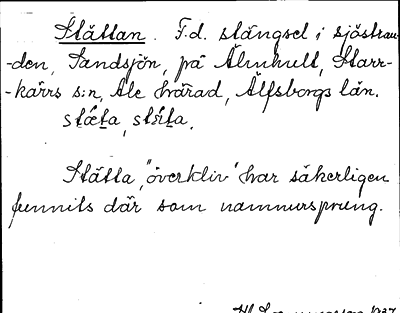 Stättan. F.d. stängsel i sjöstran-
-den, Sandsjön, på Älmhult, Starr-
-kärrs s:n, Ale härad, Älfsborgs län.
stæ̀ta, stǽta,
Stätta, "överkliv" har säkerligen
funnits där som namnursprung.